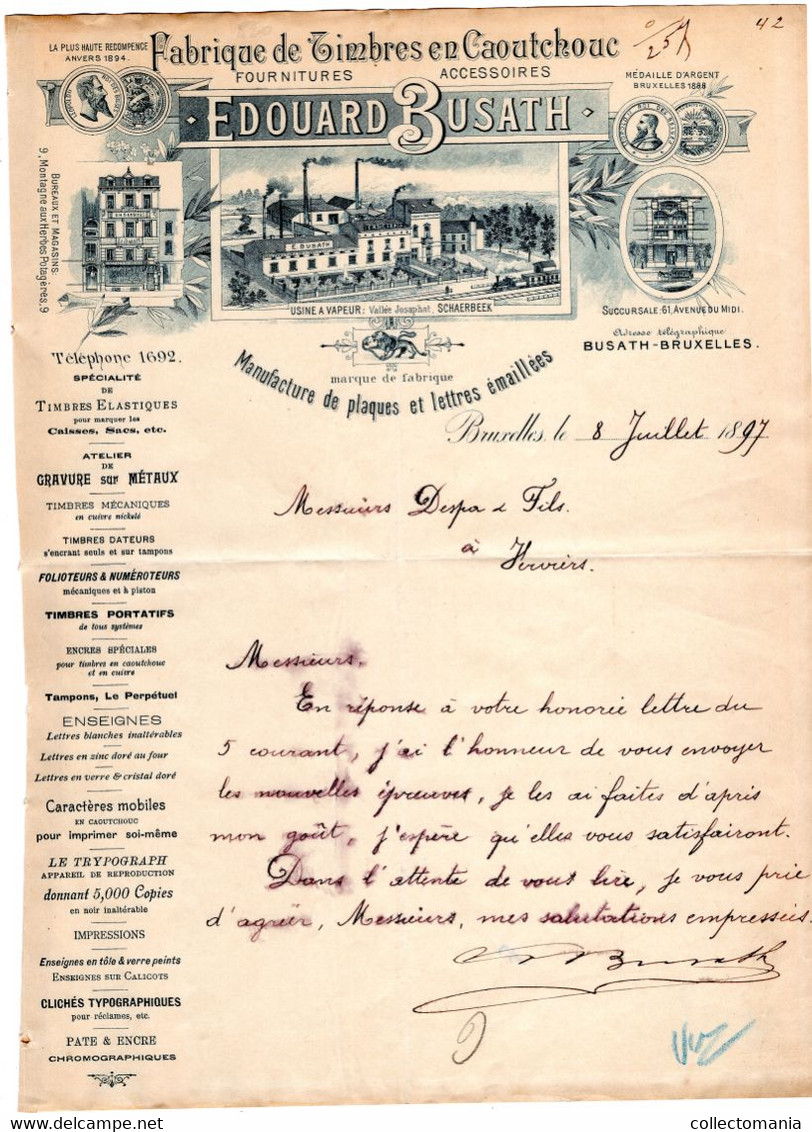 LA PLUS HAUTE RECOMPENCE
ANVERS 1894.
Fabrique de Timbres en Caoutchouc
42
FOURNITURES ACCESSOIRES
MÉDAILLE D'ARGENT
BRUXELLES 1888
EDOUARD BUSATH
BUREAUX ET MAGASINS:
9, Montagne aux Herbes Potagères, 9
E. BUSATH
USINE A VAPEUR: Vallée Josaphat, SCHAERBEEK
SUCCURSALE: 61, AVENUE DU MIDI.
Adresse télégraphique
BUSATH-BRUXELLES.
marque de fabrique
Manufacture de plaques et lettres émaillées
Téléphone 1692.
SPÉCIALITÉ
DE
TIMBRES ELASTIQUES
pour marquer les
Caisses, Sacs, etc.
ATELIER
DE
GRAVURE sur MÉTAUX
TIMBRES MÉCANIQUES
en cuivre nickelé
TIMBRES DATEURS
s'encrant seuls et sur tampons
FOLIOTEURS & NUMÉROTEURS
mécaniques et à piston
TIMBRES PORTATIFS
de tous systèmes
ENCRES SPÉCIALES
pour timbres en caoutchouc
et en cuivre
Tampons, Le Perpétuel
ENSEIGNES
Lettres blanches inaltérables
Lettres en zinc doré au four
Lettres en verre & cristal doré
Caractères mobiles
EN CAOUTCHOUC
pour imprimer soi-même
LE TRYPOGRAPH
APPAREIL DE REPRODUCTION
donnant 5,000 Copies
en noir inaltérable
IMPRESSIONS
Enseignes en tôle & verre peints
ENSEIGNES SUR CALICOTS
CLICHÉS TYPOGRAPHIQUES
pour réclames, etc.
PATE & ENCRE
CHROMOGRAPHIQUES
Bruxelles, le 8 Juillet 1897
Messieurs Despa & Fils.
à
Verviers.
Messieurs.
En réponse à votre honorée lettre du
5 courant, j'ai l'honneur de vous envoyer
les nouvelles épreuves, je les ai faites d'après
mon goût, j'espère qu'elles vous satisfairont.
Dans l'attente de vous lire, je vous prie
d'agréer, Messieurs, mes salutations empressées.
Busath
collectomania